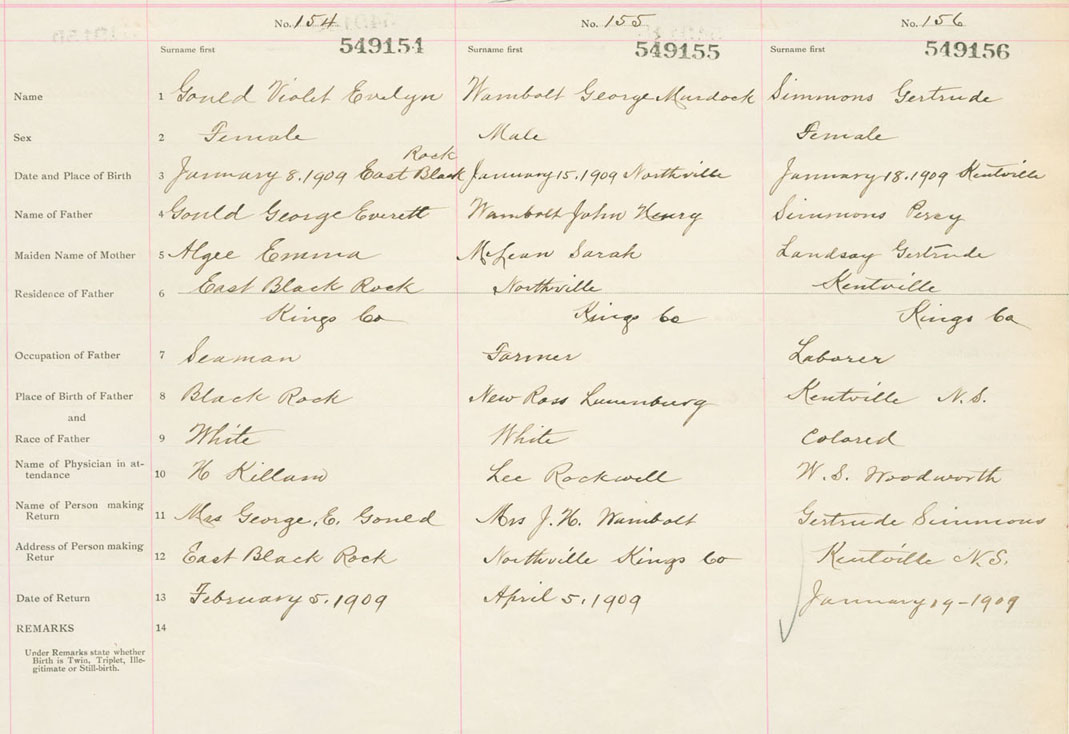 No. 154 No. 155 No. 156
Surname first 549154 Surname first 549155 Surname first 549156
Name 1 Gould Violet Evelyn Wambolt George Murdock Simmons Gertrude
Sex 2 Female Male Female
Rock
Date and Place of Birth 3 January 8. 1909 East Black January 15. 1909 Northville January 18. 1909 Kentville
Name of Father 4 Gould George Everett Wambolt John Henry Simmons Percy
Maiden Name of Mother 5 Algee Emma McLean Sarah Landsay Gertrude
Residence of Father 6 East Black Rock Northville Kentville
Kings Co Kings Co Kings Co
Occupation of Father 7 Seaman Farmer Laborer
Place of Birth of Father 8 Black Rock New Ross Lunenburg Kentville N.S.
and
Race of Father 9 White White Colored
Name of Physician in at-
tendance 10 H Killam Lee Rockwell W. S. Woodworth
Name of Person making
Return 11 Mrs George. E. Gould Mrs J. H. Wambolt Gertrude Simmons
Address of Person making
Retur 12 East Black Rock Northville Kings Co Kentville N.S.
Date of Return 13 February 5. 1909 April 5. 1909 January 19-1909
REMARKS 14
Under Remarks state whether
Birth is Twin, Triplet, Ille-
gitimate or Still-birth.